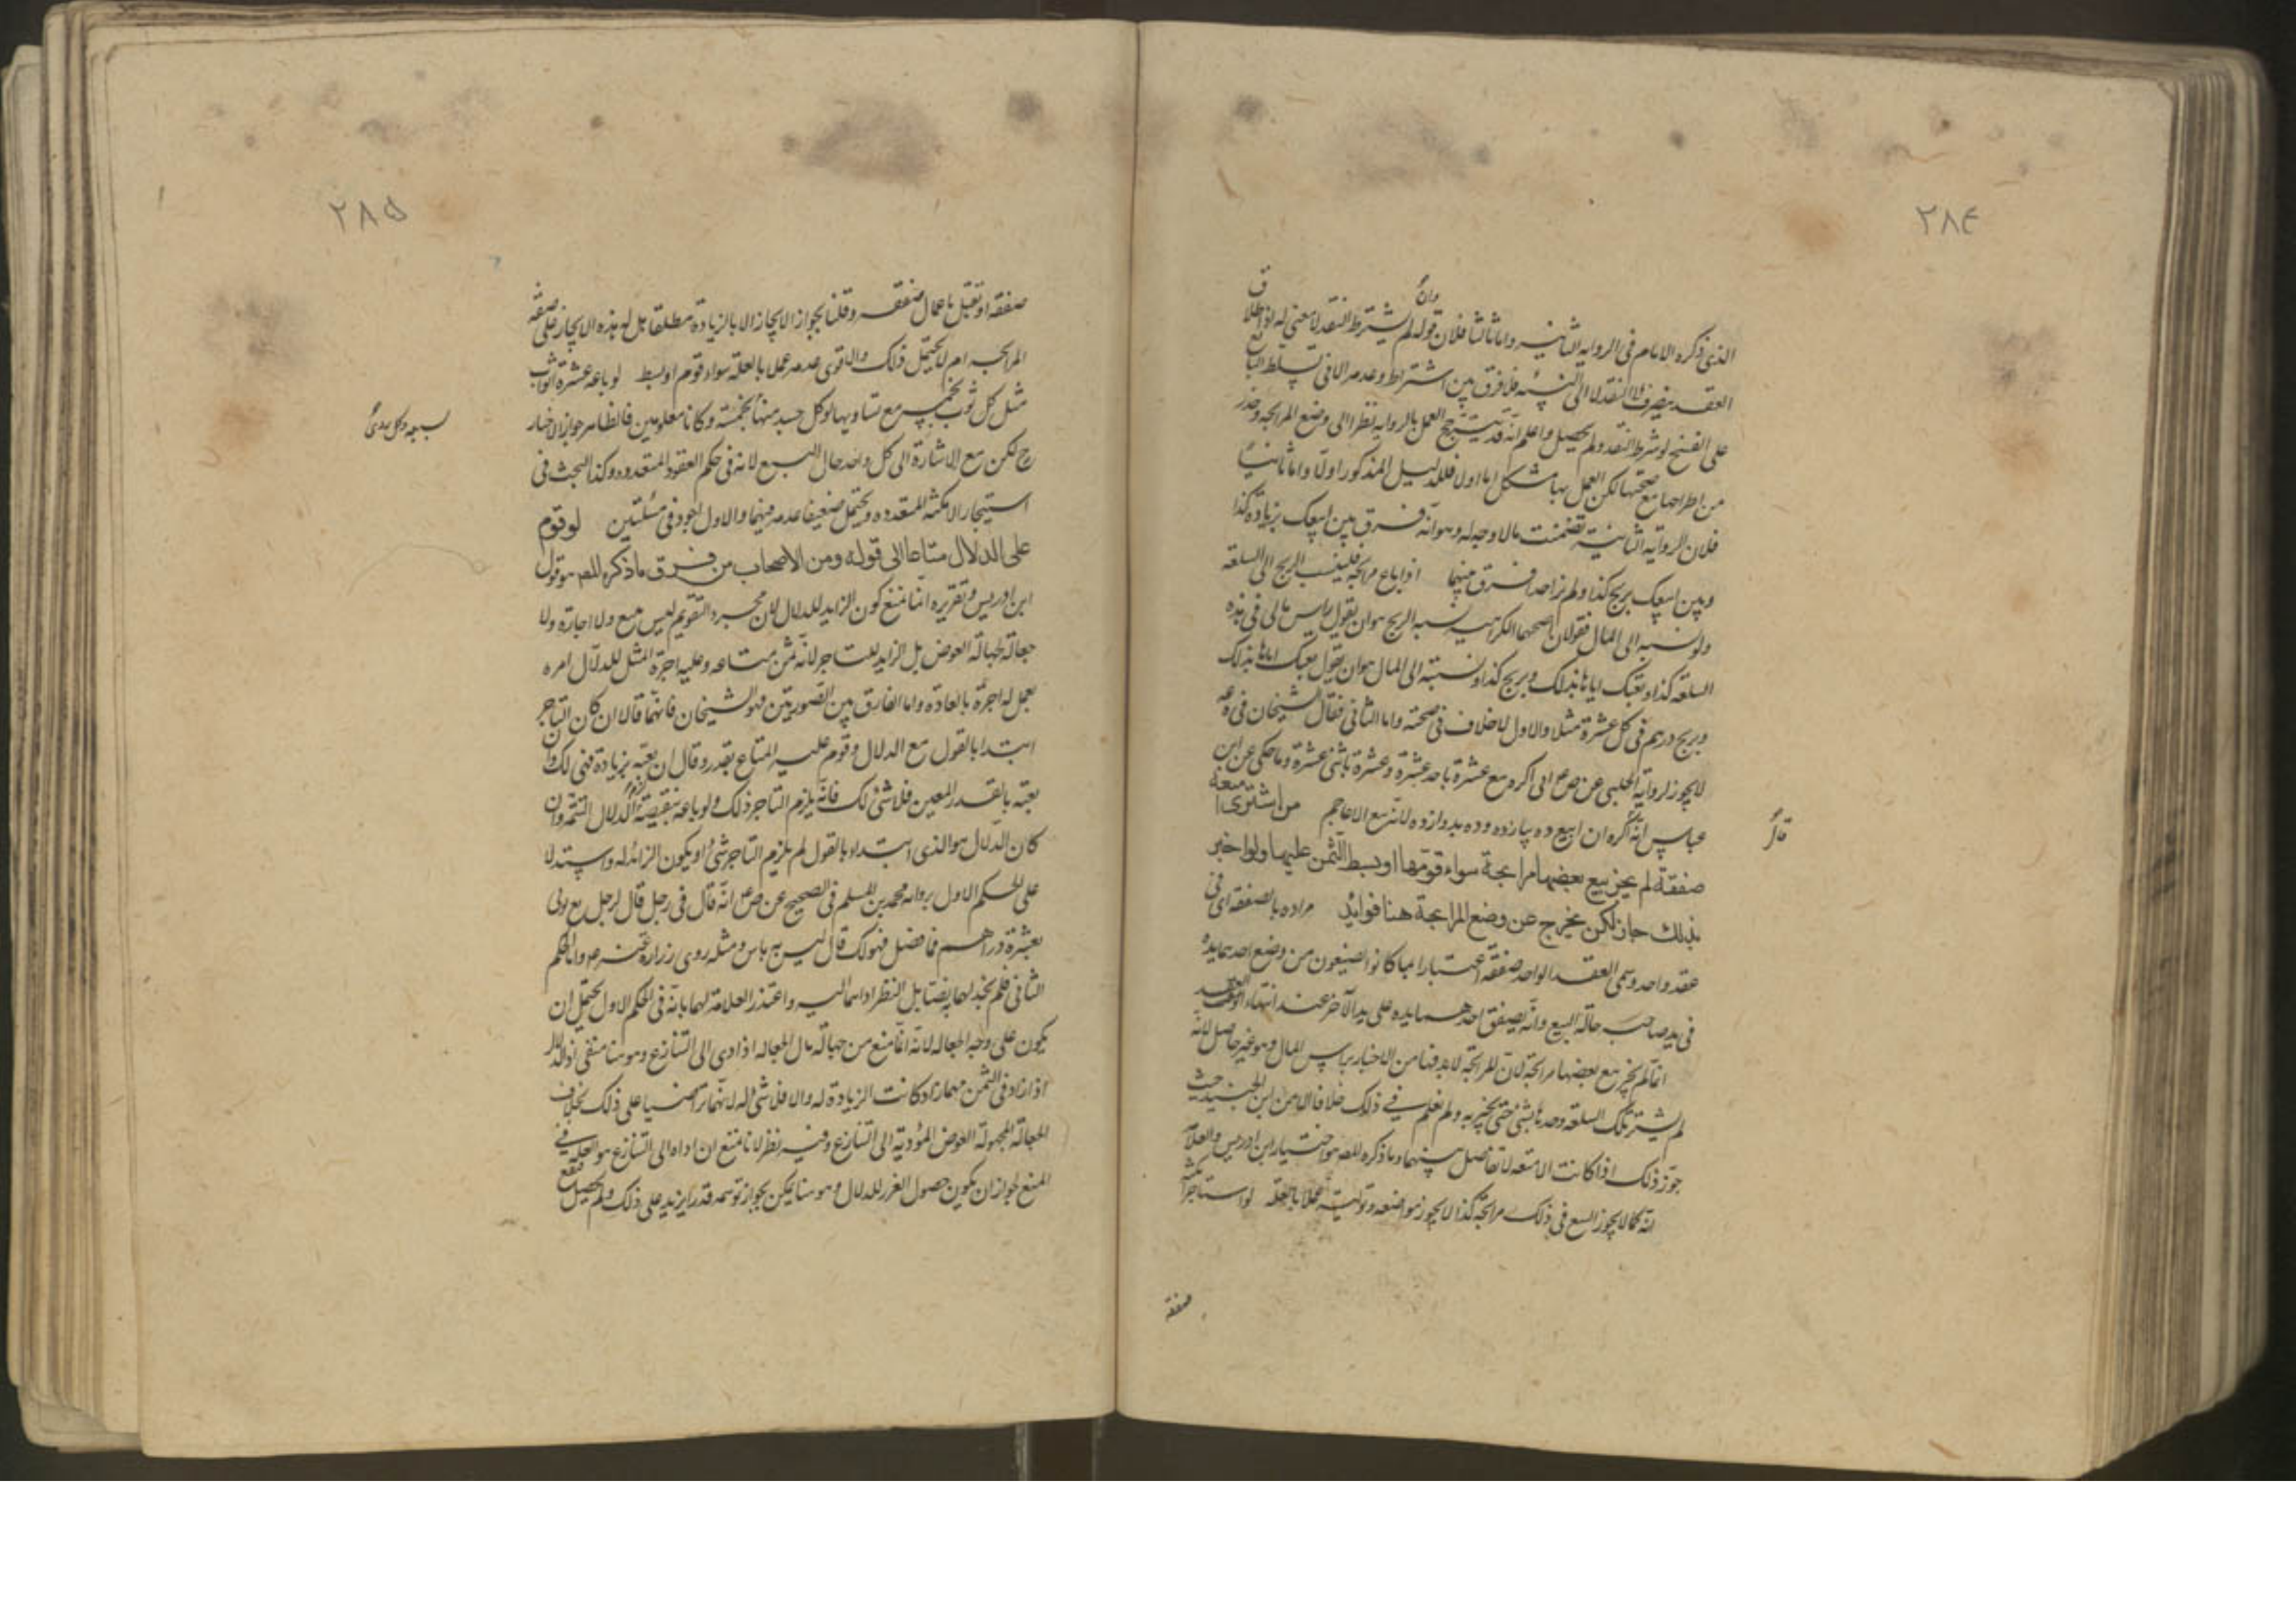 ٢٨٤
الذى ذكره الامام فى الرواية الثانية واما ثالثا فلان قوله وان لم يشترط النقد لا معنى له اذ اطلاق
العقد ينصرف الى النقد لا الى النسيئة فلا فرق بين اشتراطه وعدمه الا فى تسلط البايع
على الفسخ لو شرط النقد ولم يحصل واعلم انه قد يترجح العمل بالرواية نظرا الى وضع المرابحة وحذر
من اطراحها مع صحتها لكن العمل بها مشكل اما اولا فللدليل المذكور اولا واما ثانيا
فلان الرواية الثانية تضمنت مالا وجه له وهو انه فرق بين ابيعك بزيادة كذا
وبين ابيعك بربح كذا ولم نر احدا فرق بينهما اذا باع مرابحة فلينسب الربح الى السلعة
ولو نسبه الى المال فقولان اصحهما الكراهية نسبة الربح هو ان يقول راس مالى فى هذه
السلعة كذا وبعتك اياها بذلك وبربح كذا ونسبته الى المال هو ان يقول بعتك اياها بذلك
وبربح درهم فى كل عشرة مثلا والاول لا خلاف فى صحته واما الثانى فقال الشيخان فى يه
لا يجوز لرواية الحلبى عن ص ع انى اكره بيع عشرة باحد عشرة وعشرة باثنى عشرة وما حكى عن ابن
عباس انه اكره ان ابيع ده يازده وده دوازده لانه بيع الاعاجم من اشترى امتعة
قال
صفقة لم يجز بيع بعضها مرابحة سواء قومها او بسط الثمن عليها ولو اخبر
بذلك جاز لكن يخرج عن وضع المرابحة هنا فوايد مراده بالصفقة اى فى
عقد واحد وسمى العقد الواحد صفقة اعتبارا بما كانوا يصنعون من وضع احدهما يده
فى يد صاحبه حالة البيع وانه يصفق احدهما يده على يد الآخر عند انتهاء العقد
انما لم يجز بيع بعضها مرابحة لان المرابحة لابد فيها من الاخبار براس المال وهو غير حاصل لانه
لم يشتر تلك السلعة وحدها بشئ حتى يخبر به ولم نعلم فى ذلك خلافا الا من ابن الجنيد حيث
جوز ذلك اذا كانت الامتعة لا تفاضل بينها وما ذكره المص هو اختيار ابن ادريس والعلامة
انه كما لا يجوز البيع فى ذلك مرابحة كذا لا يجوز مواضعة وتولية عملا بالعلة لو استاجر امكنة
صفقة
٢٨٥
صفقة او تقبل باعمال صفقة وقلنا بجواز الايجار الا بالزيادة مطلقا هل له هذه الايجار على صفة
المرابحة ام لا يحتمل ذلك والاقوى عدمه عمل بالعلة سواء قوم او بسط لو باعه عشرة اثواب
مثل كل ثوب بخمسة مع تساويها او كل حسد منها بخمسة وكانا معلومين فالظاهر جواز الاخبار
ح لكن مع الاشارة الى كل واحد حال البيع لانه فى حكم العقود المتعددة وكذا البحث فى
استيجار الامكنة المتعددة ويحتمل ضعيفا عدمه فيهما والاول اجود فى مسئلتين لو قوم
على الدلال متاعا الى قوله ومن الاصحاب من فرق ما ذكره المص هو قول
ابن ادريس وتقريره انما نمنع كون الزايد للدلال لان مجرد التقويم ليس ببيع ولا اجارة ولا
جعالة لجهالة العوض بل الزايد للتاجر لانه ثمن متاعه وعليه اجرة المثل للدلال امره
بعمل له اجرة بالعادة واما الفارق بين الصورتين فهو الشيخان فانهما قالا ان كان التاجر
ابتدا بالقول مع الدلال وقوم عليه المتاع بقدر وقال ان بعته بزيادة فهى لك وان
بعته بالقدر المعين فلا شئ لك فانه يلزم التاجر ذلك ولو باعه بنقيصة لزم الدلال التتمة وان
كان الدلال هو الذى ابتداه بالقول لم يلزم التاجر شئ ويكون الزائد له واستدلا
على الحكم الاول برواية محمد بن مسلم فى الصحيح عن ص ع انه قال فى رجل قال لرجل بع ثوبى
بعشرة دراهم فما فضل فهو لك قال ليس به باس ومثله روى زرارة عنه ع واما الحكم
الثانى فلم نجد لهما نصا بل النظر اداهما اليه واعتذر العلامة لهما بانه فى الحكم الاول يحتمل ان
يكون على وجه الجعالة لانه انما منع من جهالة مال الجعالة اذا ادى الى التنازع وهو هنا منتفى اذ الدلال
اذا زاد فى الثمن مهما زاد كانت الزيادة له والا فلا شئ له لانهما تراضيا على ذلك بخلاف
الجعالة المجهولة العوض المؤدية الى التنازع وفيه نظر لانا نمنع ان اداه الى التنازع هو العلة فى
المنع لجواز ان يكون حصول الغرر للدلال وهو هنا يمكن بجواز توهمه قدرا يزيد على ذلك ولم يحصل فيقع